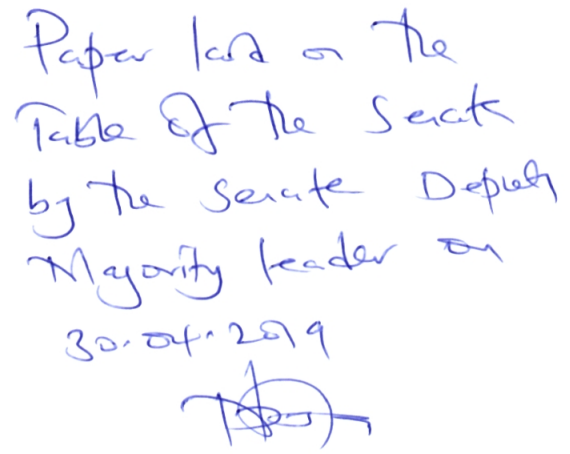 Paper laid on the
Table of the Senate
by the Senate Deputy
Majority leader on
30.04.2019